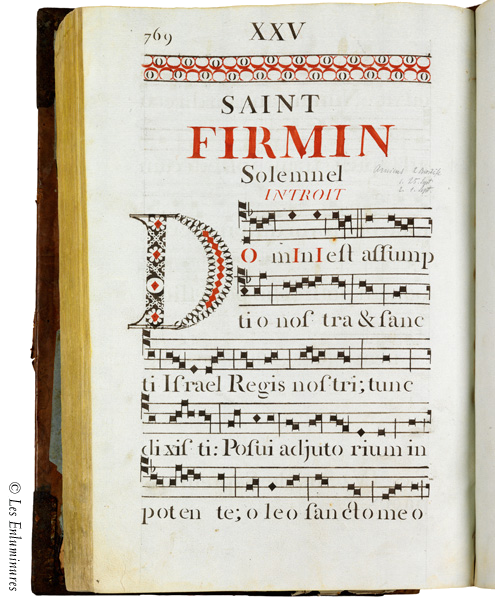 769
XXV
SAINT
FIRMIN
Solemnel
INTROIT
DO mINI est aſſump
ti o noſ tra & ſanc
ti Iſrael Regis noſtri; tunc
di xiſ ti: Poſui adjuto rium in
poten te; o leo ſancto me o
© Les Enluminures